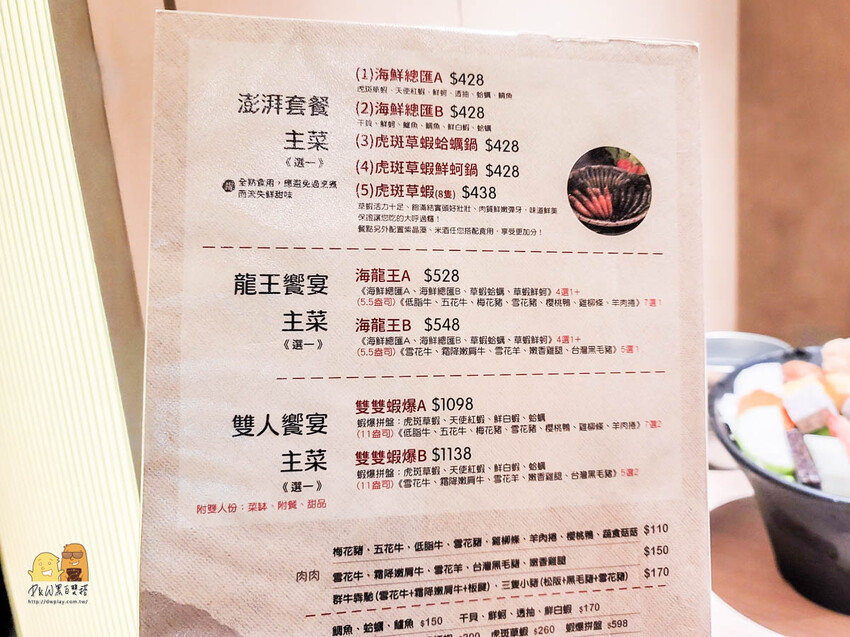 澎湃套餐
主菜
《選一》
全熟食用，應避免過烹煮
而流失鮮甜味
(1)海鮮總匯A $428
虎斑草蝦、天使紅蝦、鮮蚵、透抽、蛤蠣、鯛魚
(2)海鮮總匯B $428
干貝、鮮蚵、鱸魚、鯛魚、鮮白蝦、蛤蠣
(3)虎斑草蝦蛤蠣鍋 $428
(4)虎斑草蝦鮮蚵鍋 $428
(5)虎斑草蝦(8隻) $438
草蝦活力十足、飽滿結實頭好壯壯、肉質鮮嫩彈牙，味道鮮美
保證讓您吃的大呼過癮！
餐點另外配置紫晶藻、米酒任您搭配食用，享受更加分！
龍王饗宴
主菜
《選一》
海龍王A $528
《海鮮總匯A、海鮮總匯B、草蝦蛤蠣、草蝦鮮蚵》4選1+
(5.5盎司)《低脂牛、五花牛、梅花豬、雪花豬、櫻桃鴨、雞柳條、羊肉捲》7選1
海龍王B $548
《海鮮總匯A、海鮮總匯B、草蝦蛤蠣、草蝦鮮蚵》4選1+
(5.5盎司)《雪花牛、霜降嫩肩牛、雪花羊、嫩香雞腿、台灣黑毛豬》5選1
雙人饗宴
主菜
《選一》
附雙人份：菜缽、附餐、甜品
雙雙蝦爆A $1098
蝦爆拼盤：虎斑草蝦、天使紅蝦、鮮白蝦、蛤蠣
(11盎司)《低脂牛、五花牛、梅花豬、雪花豬、櫻桃鴨、雞柳條、羊肉捲》7選2
雙雙蝦爆B $1138
蝦爆拼盤：虎斑草蝦、天使紅蝦、鮮白蝦、蛤蠣
(11盎司)《雪花牛、霜降嫩肩牛、雪花羊、嫩香雞腿、台灣黑毛豬》5選2
肉肉
梅花豬、五花牛、低脂牛、雪花豬、雞柳條、羊肉捲、櫻桃鴨、蔬食菇菇 $110
雪花牛、霜降嫩肩牛、雪花羊、台灣黑毛豬、嫩香雞腿 $150
群牛犇馳(雪花牛+霜降嫩肩牛+板腱)、三隻小豬(松阪+黑毛豬+雪花豬) $170
鯛魚、蛤蠣、鱸魚 $150 干貝、鮮蚵、透抽、鮮白蝦 $170
虎斑草蝦 $260 蝦爆拼盤 $598
http://dwplay.com.tw/